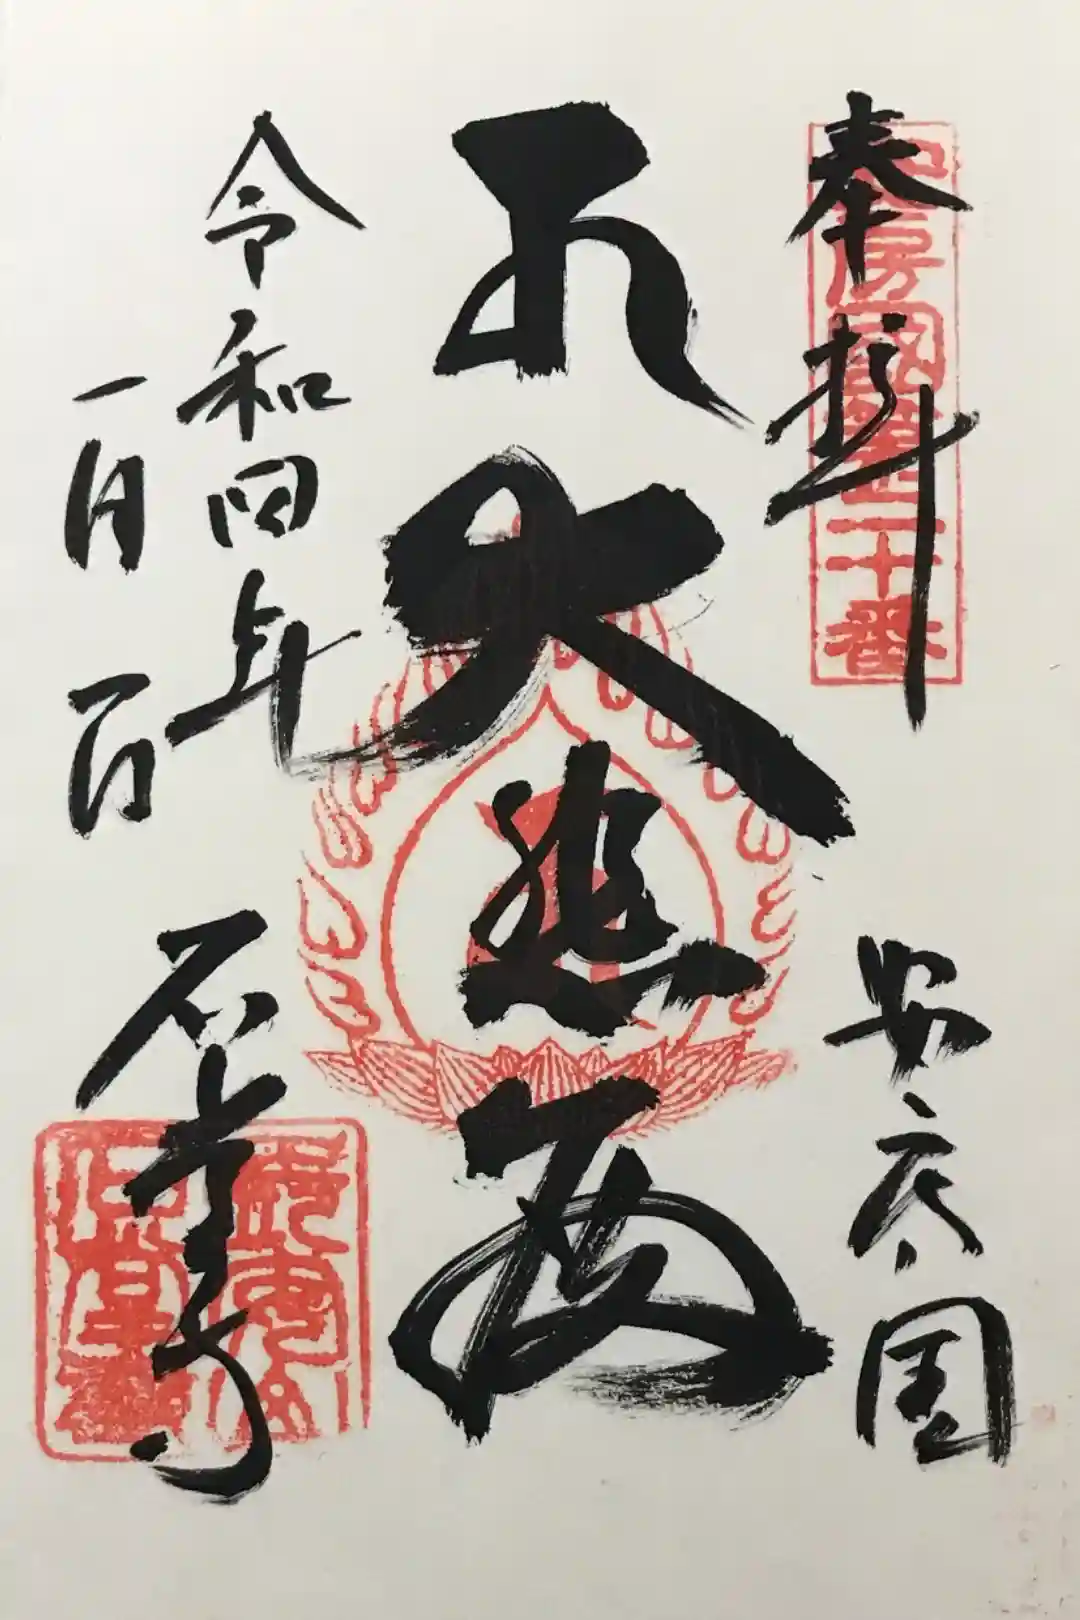 奉拝
安房国
安房國第二十番
大悲
令和四年
一月一日
石堂寺